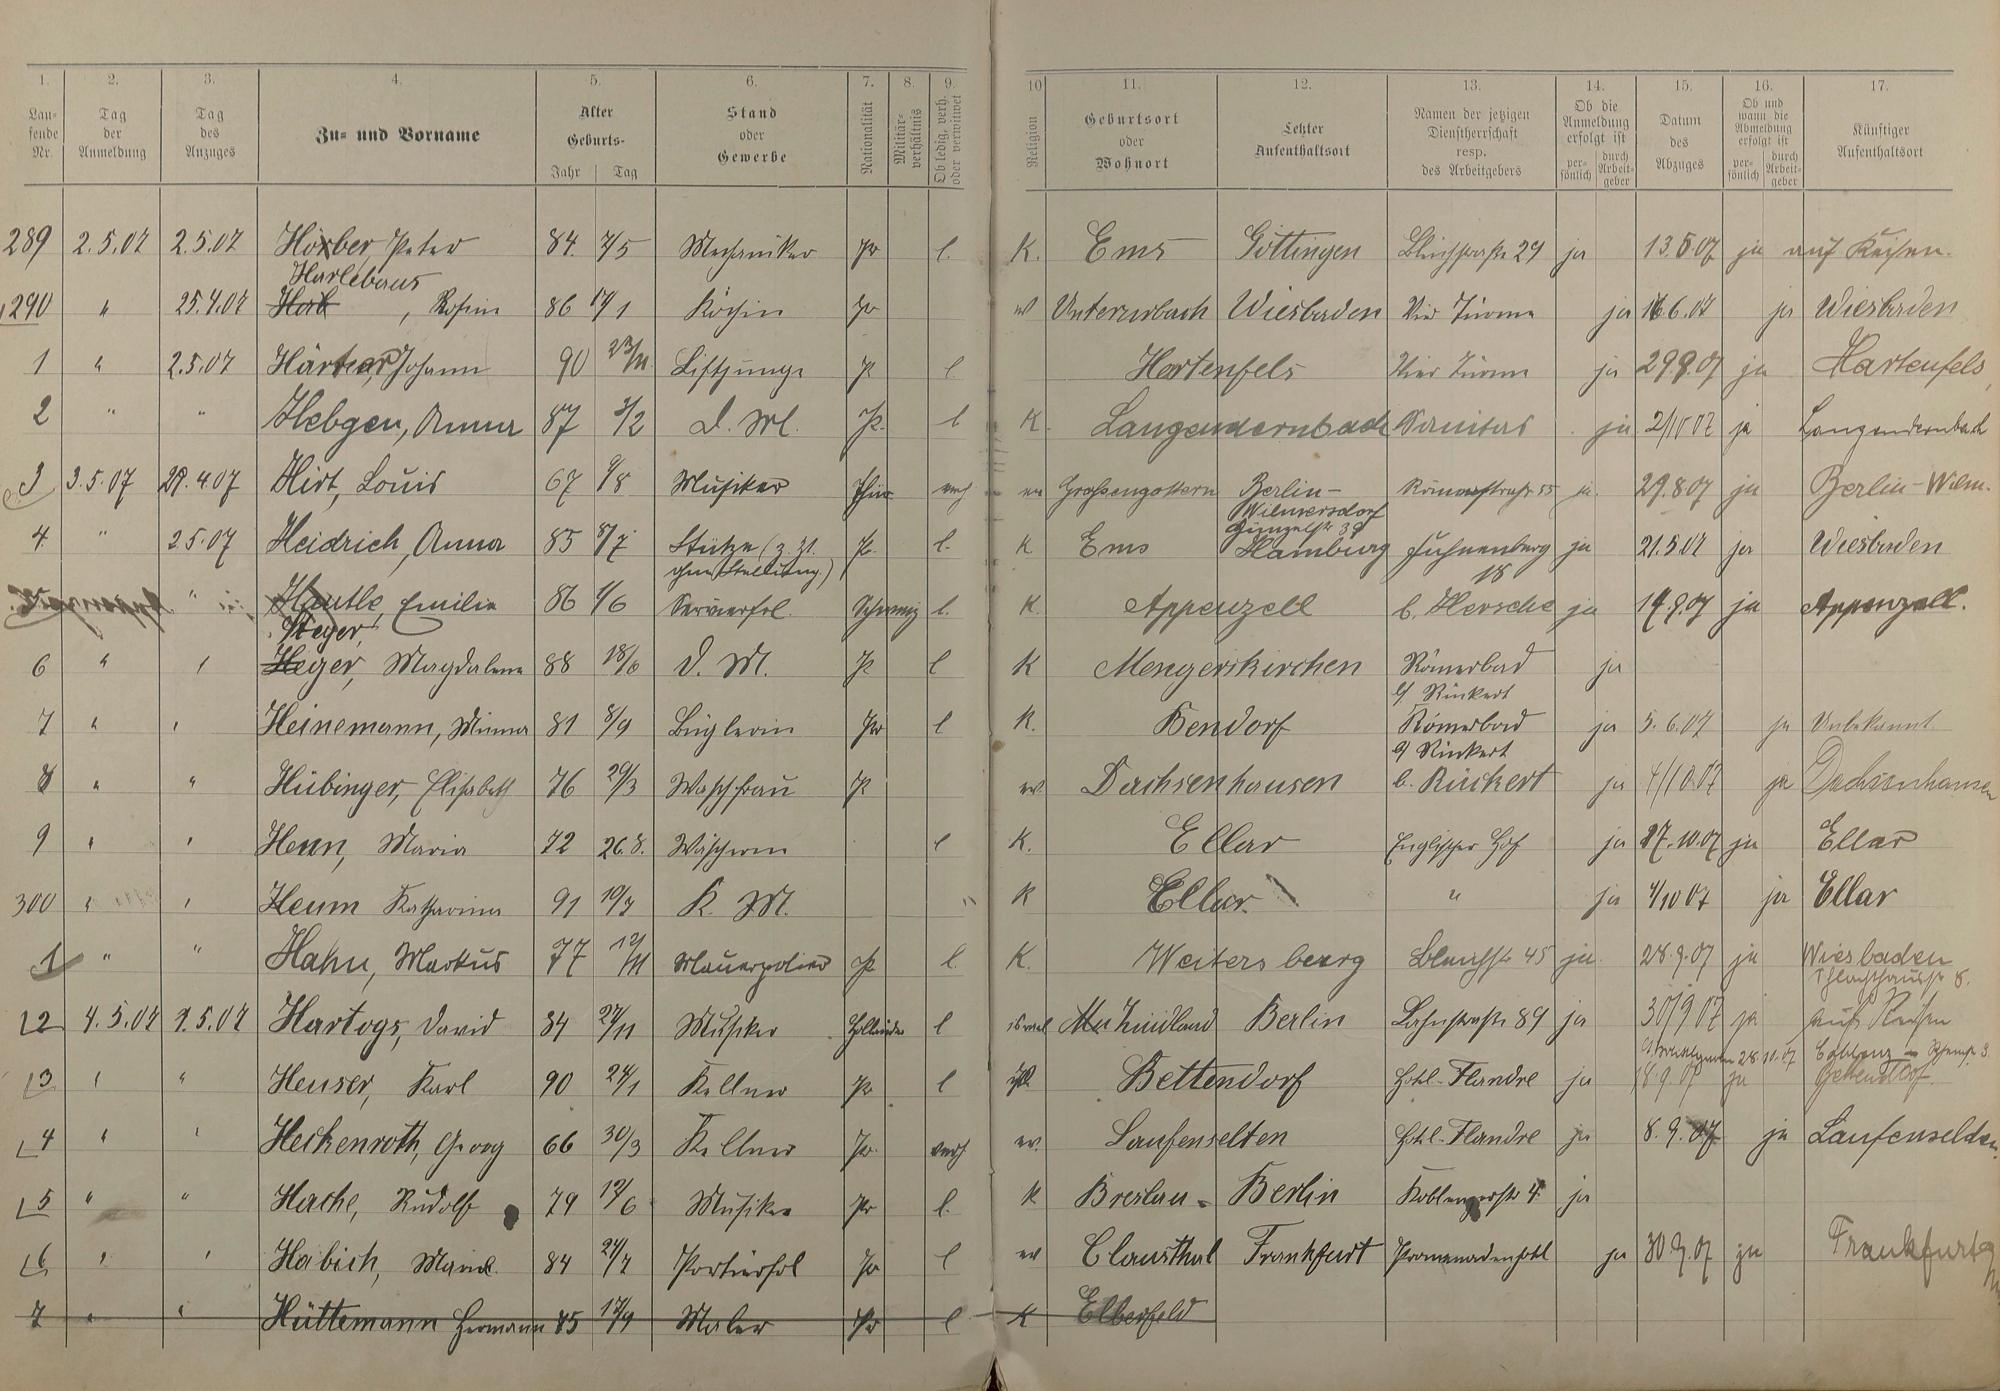 1. 2. 3. 4. 5. 6. 7. 8. 9. 10 11. 12. 13. 14. 15. 16. 17.
Lau-
fende
Nr.
Tag
der
Anmeldung
Tag
des
Anzuges
Zu- und Vorname
Alter
Geburts-
Jahr Tag
Stand
oder
Gewerbe
Nationalität
Militär-
verhältnis
Ob ledig, verh.
oder verwitwet
Religion
Geburtsort
oder
Wohnort
Letzter
Aufenthaltsort
Namen der jetzigen
Dienstherrschaft
resp.
des Arbeitgebers
Ob die
Anmeldung
erfolgt ist
per-
sönlich
durch
Arbeit-
geber
Datum
des
Abzuges
Ob und
wann die
Abmeldung
erfolgt ist
per-
sönlich
durch
Arbeit-
geber
Künftiger
Aufenthaltsort
289 2.5.07 2.5.07 Peter 84. 7/5 Mechaniker Pr l. K. Ems Göttingen Bleichstraße 29 ja 13.5.07 ja auf Reisen.
Harlebaus
290 " 25.4.07 Horb, Rosine 86 14/1 Köchin Pr ev Wiesbaden Vier Türme ja 6.07 ja Wiesbaden
1 " 2.5.07 Johann 90 23/11 Liftjunge P l Hartenfels Vier Türme ja 29.9.07 ja Hartenfels
2 " " Hebgen, Anna 87 3/2 D. M. P. l K. Langendernbach Sanitas ja 2/10 07 ja Langendernbach
3 3.5.07 29.4.07 Hirt, Louis 67 9/8 Musiker Thür verh ev Großengottern Berlin- Römerstraße 55 ja. 29.8.07 ja Berlin-Wilm.
Wilmersdorf
Günzelstr 39
4 " 2.5.07 Heidrich, Anna 85 8/7 Stütze (z. Zt. P. l. K Ems Hamburg ja 21.5.07 ja Wiesbaden
ohne Stellung.) 18
" Hautle, Emilie 86 1/6 Servierfrl. Schweiz l. K. Appenzell b. Hersche ja 19.9.07 ja Appenzell.
Steyer,
6 " " Heyer, Magdalena 88 18/6 D. M. P l K Mengerskirchen Römerbad ja
b/ Rückert
7 " " Heinemann, Minna 81 8/9 Büglerin Pr l K. Bendorf Römerbad ja 5.6.07 ja Unbekannt
b/ Rückert
8 " " Hübinger, Elisabeth 76 29/3 Waschfrau P ev. Dachsenhausen b. Rückert ja 4/10.07 ja Dachsenhausen
9 " " Henn, Maria 72 26.8. Wäscherin l K. Ellar Englischer Hof ja 27.10.07 ja Ellar
300 " " Heum Katharina 91 19/7 K. M. K Ellar. " ja 4/10 07 ja Ellar
1 " " Hahn, Markus 77 12/11 Mauerpolier P l. K. Weitersbeurg 45 ja. 28.9.07 ja Wiesbaden
Schlachthausstr 8.
2 4.5.07 1.5.07 Hartogs, David 84 27/11 Musiker Holländer l israel Berlin Lahnstraße 89 ja 30/9 07 ja auf Reisen
28.10.07 Coblenz
3 " " Heuser, Karl 90 24/1 Kellner Pr l Bettendorf Hotel-Flandre ja 18.9.07 ja Bettendorf.
4 " " Heckenroth, Georg 66 30/3 Kellner Pr. verh ev. Laufenselten Hotel-Flandre ja 8.9.07 ja Laufenselden.
5 " " Hache, Rudolf 79 12/6 Musiker Pr l. K Breslau Berlin Koblenzerstr 4 ja
6 " " Habich, 84 24/7 Portierfrl Pr l ev Clausthal Frankfurt Promenadenhotel ja 30.9.07 ja Frankfurt
7 " " Hüttemann Hermann 85 17/9 Maler Pr l K Elberfeld